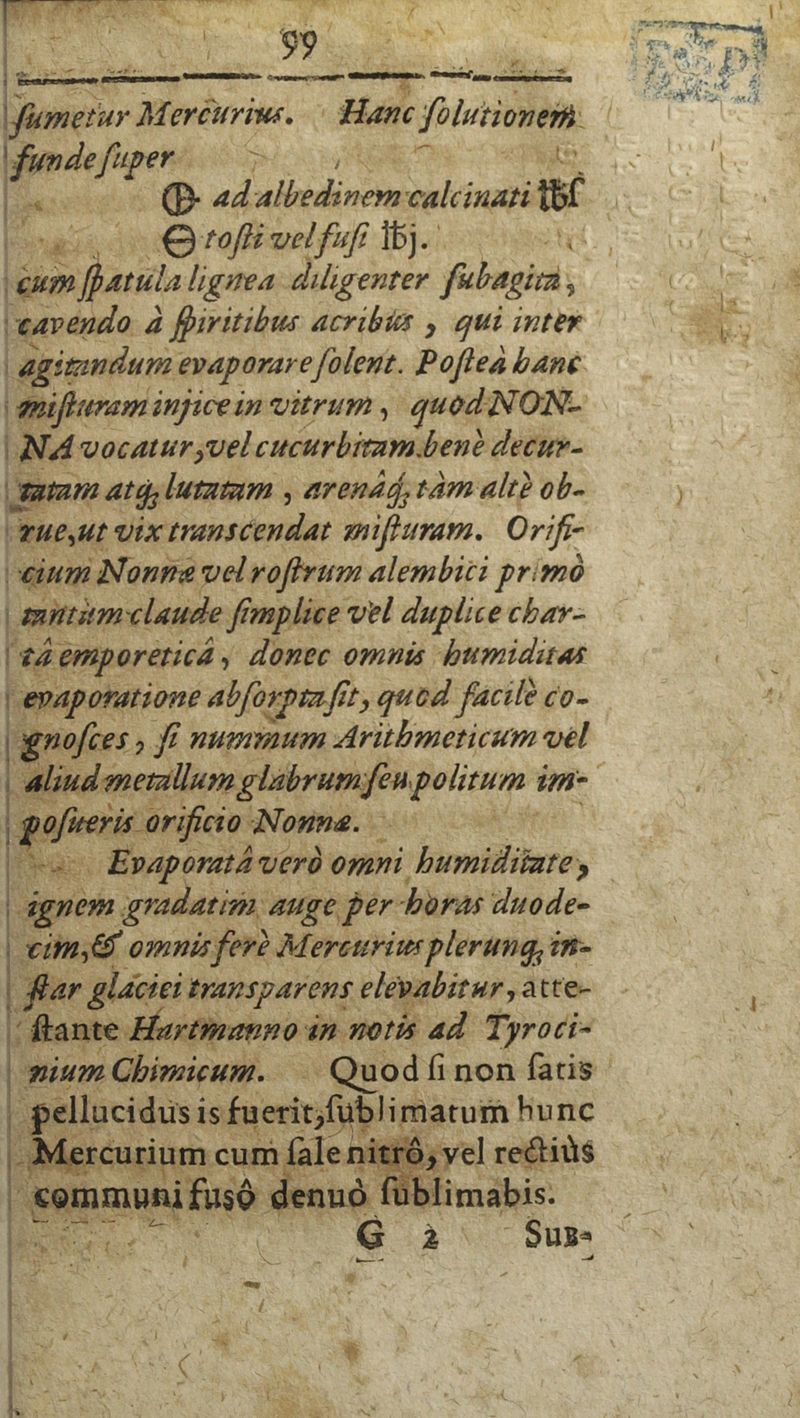 99
ſumetur Mercurius. Hanc ſolutionem
funde ſuper
🜖 ad albedinem calcinati ℔ſ
🜔 toſti vel fuſi ℔j.
cum ſpatula lignea diligenter ſubagita,
cavendo à ſpiritibus acribus, qui inter
agitandum evaporare ſolent. Poſteà hanc
miſturam injice in vitrum, quod NON-
NA vocatur, vel cucurbitam bene decur-
tatam atq; lutatam, arenâq; tàm altè ob-
rue, ut vix transcendat miſturam. Orifi-
cium Nonnæ vel roſtrum alembici primò
tantùm claude ſimplice vel duplice char-
tâ emporeticâ, donec omnis humiditas
evaporatione abſorpta ſit, quod facilè co-
gnoſces, ſi nummum Arithmeticum vel
aliud metallum glabrum ſeu politum im-
poſueris orificio Nonnæ.
Evaporatâ verò omni humiditate,
ignem gradatim auge per horas duode-
cim, & omnis ferè Mercurius plerunq; in-
ſtar glaciei transparens elevabitur, atte-
ſtante Hartmanno in notis ad Tyroci-
nium Chimicum. Quod ſi non ſatis
pellucidus is fuerit, ſublimatum hunc
Mercurium cum ſale nitrô, vel rectiùs
communi fusô denuò ſublimabis.
G 2 SUB-